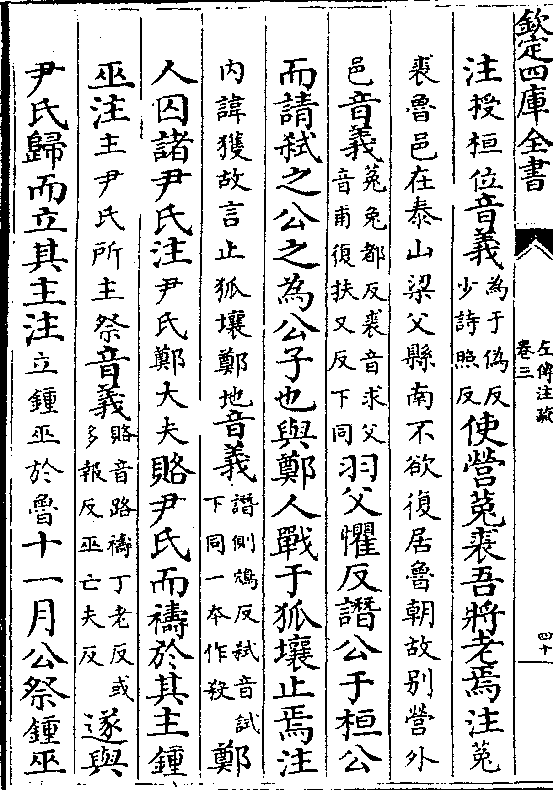 欽定四庫全書
左傳注疏
卷三
四十
注授桓位音義為于偽反少詩照反使營菟裘吾將老焉注菟
裘魯邑在泰山梁父縣南不欲復居魯朝故别營外
邑音義菟兔都反裘音求父音甫復扶又反下同羽父懼反譖公于桓公
而請弑之公之為公子也與鄭人戰于狐壤止焉注
内諱獲故言止狐壤鄭地音義譖側鴆反弑音試下同一本作殺鄭
人囚諸尹氏注尹氏鄭大夫賂尹氏而禱於其主鍾
巫注主尹氏所主祭音義賂音路禱丁老反或多報反巫亡夫反遂與
尹氏歸而立其主注立鍾巫於魯十一月公祭鍾巫